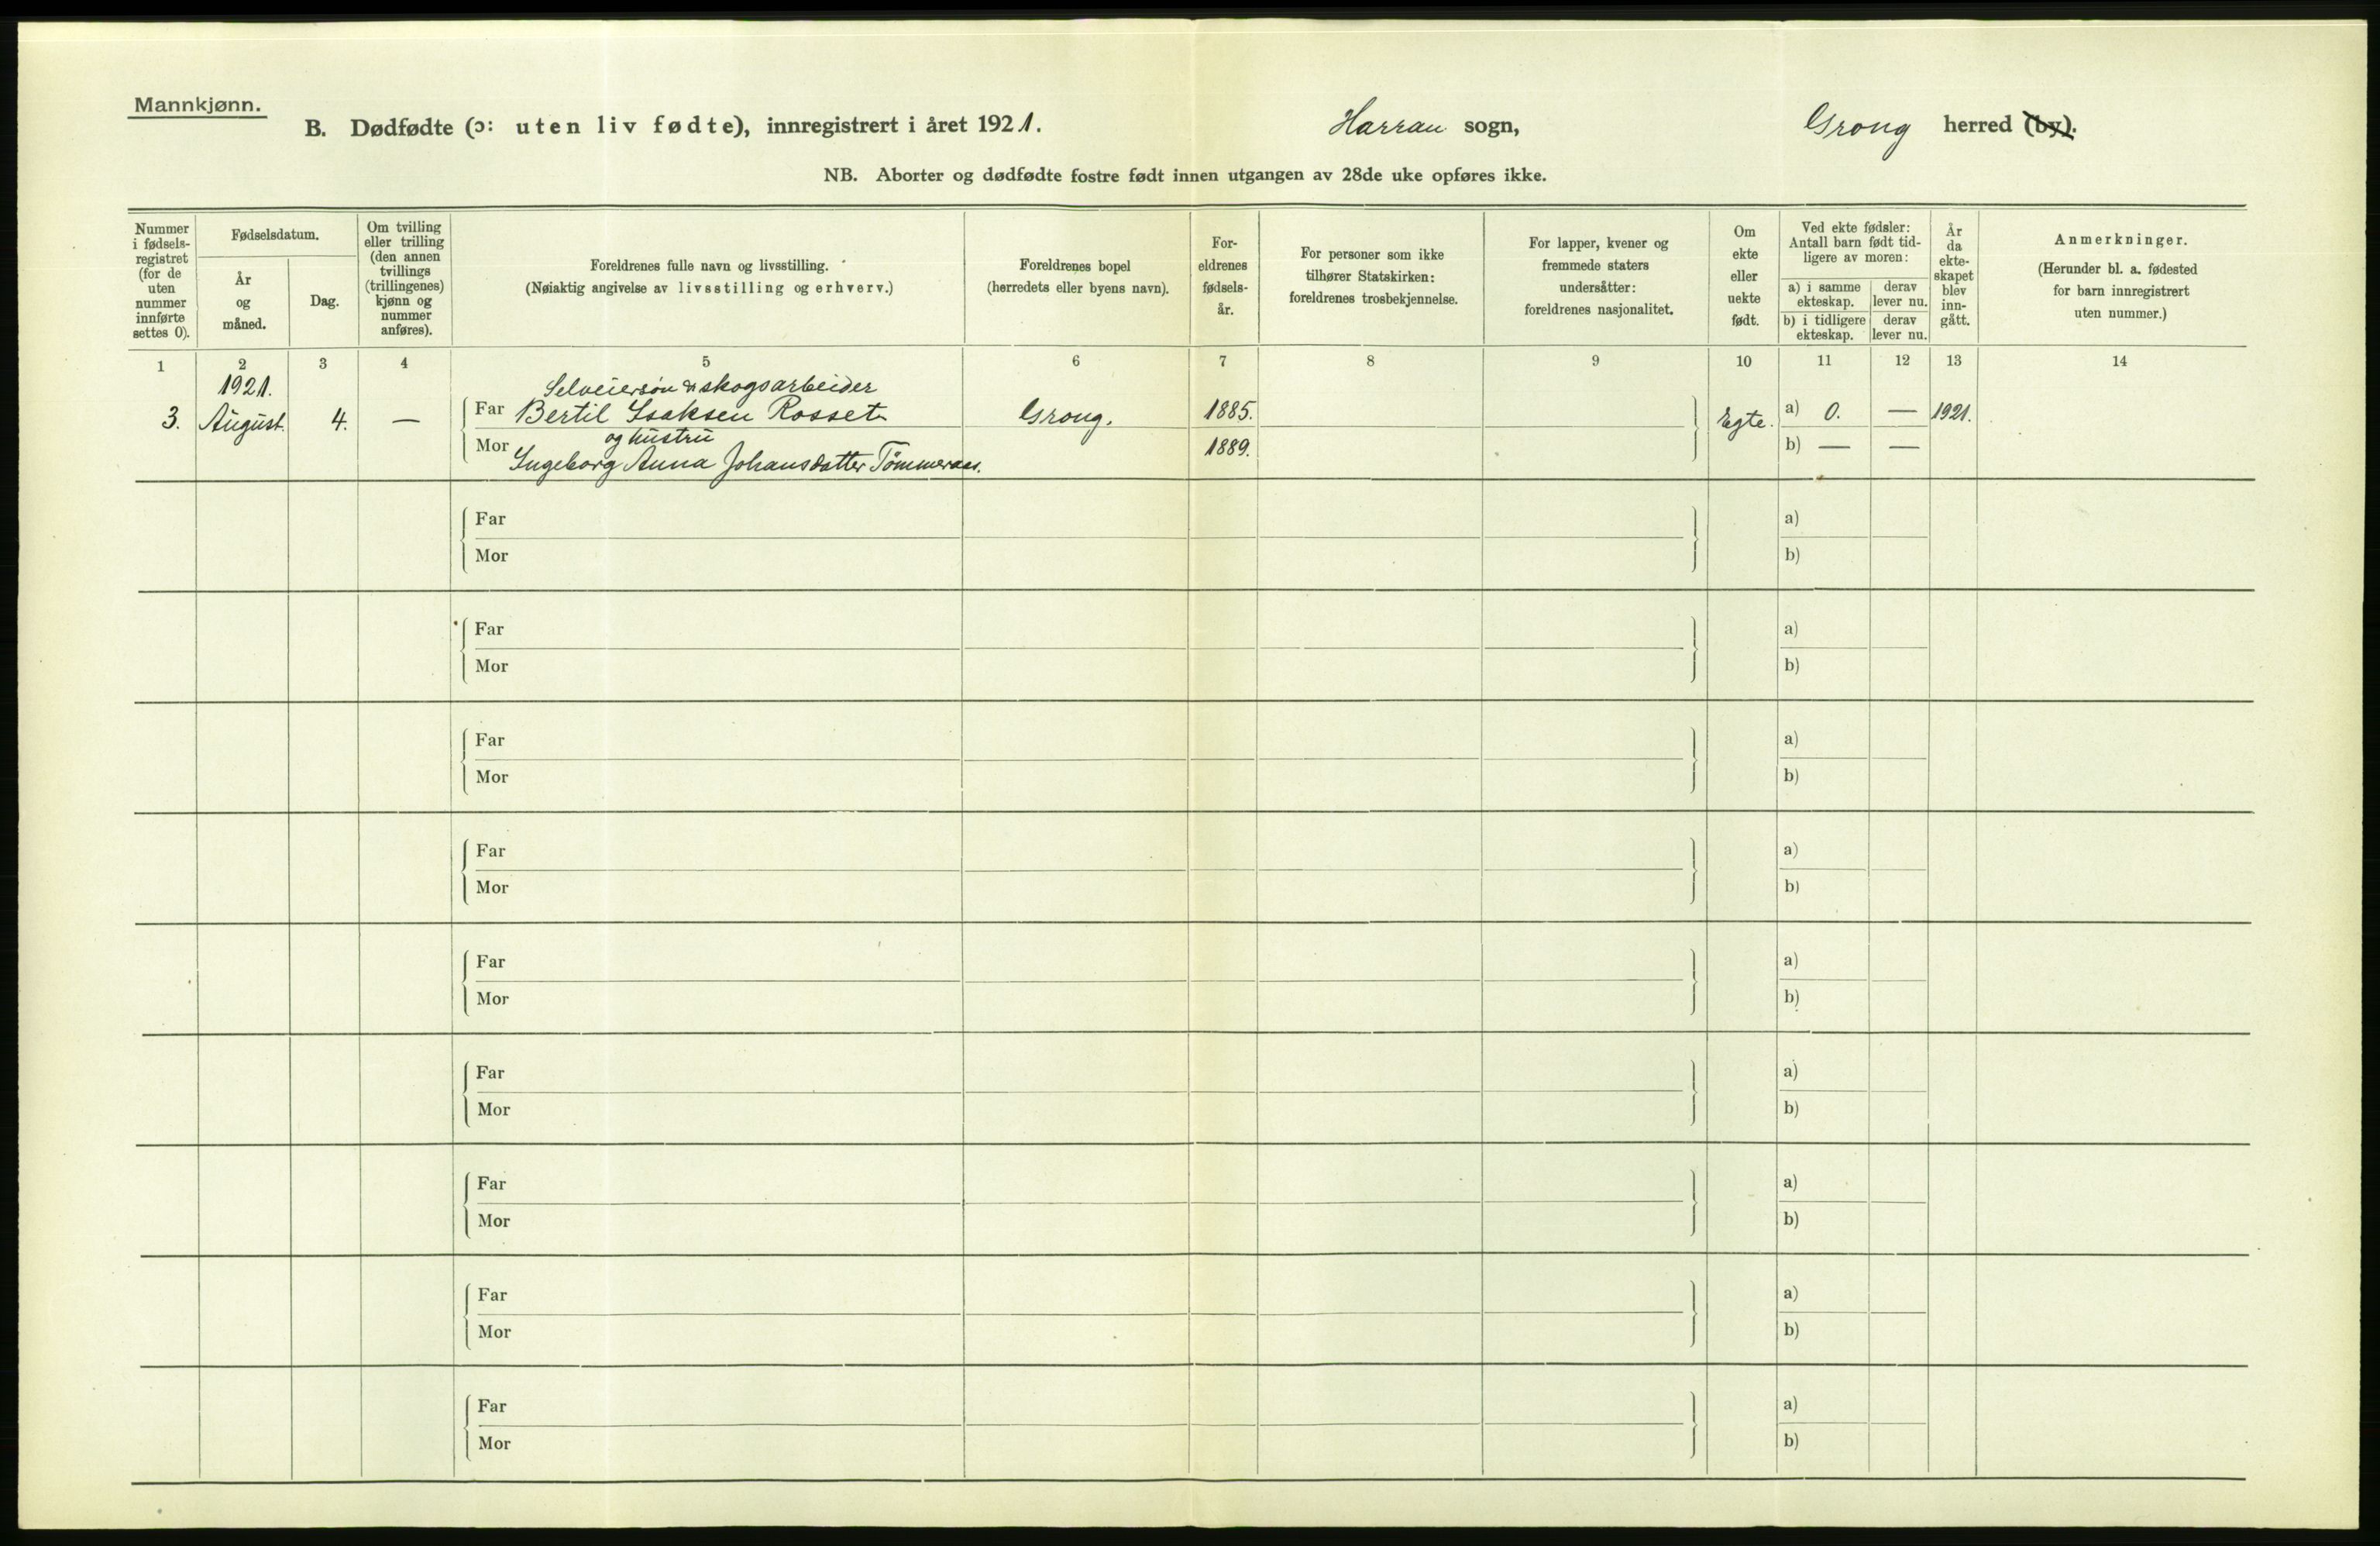 Mannkjønn.
B. Dødfødte (ɔ: uten liv fødte), innregistrert i året 1921. Harran sogn, Grong herred (by).
NB. Aborter og dødfødte fostre født innen utgangen av 28de uke opføres ikke.
Nummer i fødsels- registret (for de uten nummer innførte settes 0).
Fødselsdatum.
År og måned.
Dag.
Om tvilling eller trilling (den annen tvillings (trillingenes) kjønn og nummer anføres).
Foreldrenes fulle navn og livsstilling.
(Nøiaktig angivelse av livsstilling og erhverv.)
Foreldrenes bopel
(herredets eller byens navn).
For- eldrenes fødsels- år.
For personer som ikke tilhører Statskirken: foreldrenes trosbekjennelse.
For lapper, kvener og fremmede staters undersåtter: foreldrenes nasjonalitet.
Om ekte eller uekte født.
Ved ekte fødsler: Antall barn født tid- ligere av moren:
a) i samme ekteskap. derav lever nu.
b) i tidligere ekteskap. derav lever nu.
År da ekte- skapet blev inn- gått.
Anmerkninger.
(Herunder bl. a. fødested for barn innregistrert uten nummer.)
1 2 3 4 5 6 7 8 9 10 11 12 13 14
1921. Selveiersøn & skogsarbeider
3. August. 4. — Far Bertil Isaksen Rosset Grong. 1885. Egte. a) 0. — 1921.
og hustru
Mor Ingeborg Anna Johansdatter Tömmeraas. 1889. b) — —
Far a)
Mor b)
Far a)
Mor b)
Far a)
Mor b)
Far a)
Mor b)
Far a)
Mor b)
Far a)
Mor b)
Far a)
Mor b)
Far a)
Mor b)
Far a)
Mor b)